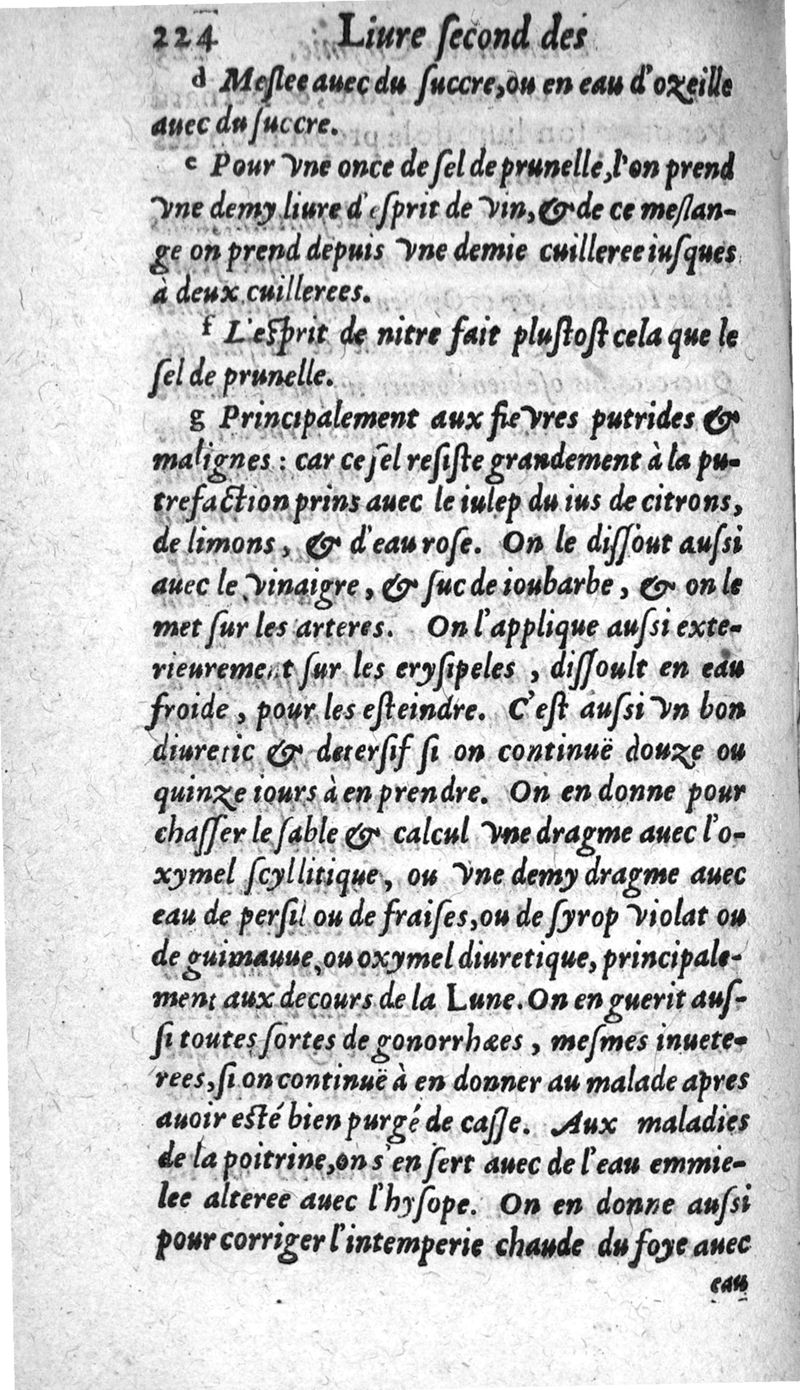 224 Liure ſecond des
d Meſlee auec du ſuccre, ou en eau d'ozeille
auec du ſuccre.
e Pour vne once de ſel de prunelle, l'on prend
vne demy liure d'eſprit de vin, & de ce meſlan-
ge on prend depuis vne demie cuilleree iuſques
à deux cuillerees.
f L'eſprit de nitre fait pluſtoſt cela que le
ſel de prunelle.
g Principalement aux fievres putrides &
malignes : car ce ſel reſiſte grandement à la pu-
trefaction prins auec le iulep du ius de citrons,
de limons, & d'eau roſe. On le diſſout auſſi
auec le vinaigre, & ſuc de ioubarbe, & on le
met ſur les arteres. On l'applique auſſi exte-
rieurement ſur les eryſipeles, diſſoult en eau
froide, pour les eſteindre. C'eſt auſſi vn bon
diuretic & deterſif ſi on continuë douze ou
quinze iours à en prendre. On en donne pour
chaſſer le ſable & calcul vne dragme auec l'o-
xymel ſcyllitique, ou vne demy dragme auec
eau de perſil ou de fraiſes, ou de ſyrop violat ou
de guimauue, ou oxymel diuretique, principale-
ment aux decours de la Lune. On en guerit auſ-
ſi toutes ſortes de gonorrhæes, meſmes inuete-
rees, ſi on continuë à en donner au malade apres
auoir eſté bien purgé de caſſe. Aux maladies
de la poitrine, on s'en ſert auec de l'eau emmie-
lee alteree auec l'hyſope. On en donne auſſi
pour corriger l'intemperie chaude du foye auec
eau